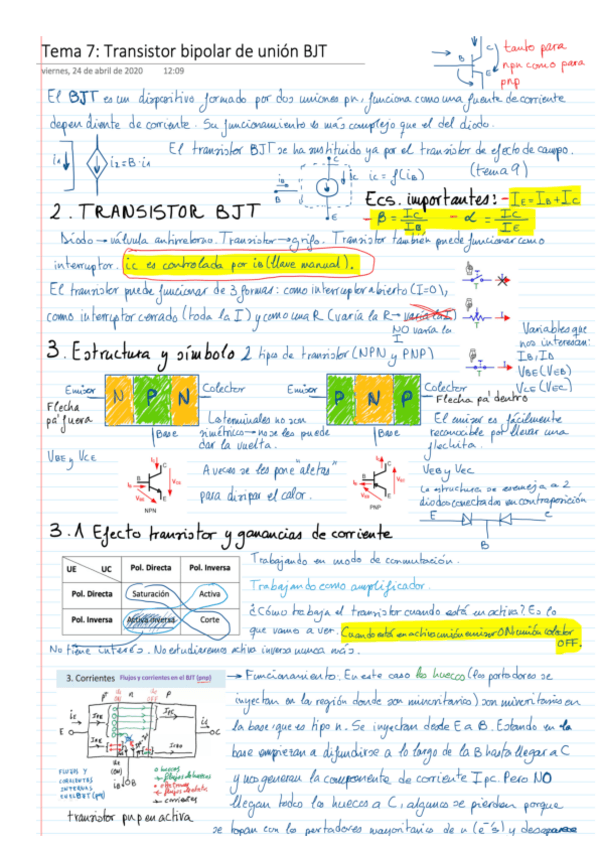 Tema 7: Transistor bipolar de unión BJT
viernes, 24 de abril de 2020 12:09
tanto para
npn como para
pnp
C
B
E
El BJT es un dispositivo formado por dos uniones pn, funciona como una fuente de corriente
dependiente de corriente. Su funcionamiento es más complejo que el del diodo.
El transistor BJT se ha sustituido ya por el transistor de efecto de campo.
(tema 9)
i1
i2=B·i1
iB
B
C
ic
ic = f(iB)
E
Ecs. importantes: - IE=IB+IC
- β = IC/IB - α = IC/IE
2. TRANSISTOR BJT
Diodo → válvula antirretorno. Transistor → grifo. Transistor también puede funcionar como
interruptor. ic es controlada por iB (llave manual).
El transistor puede funcionar de 3 formas: como interruptor abierto (I=0),
como interruptor cerrado (toda la I) y como una R (varía la R →
NO varía la
I
Variables que
nos interesan:
IB, ID
VBE (VEB)
VCE (VEC)
3. Estructura y símbolo 2 tipos de transistor (NPN y PNP)
Emisor N P N Colector
Emisor P N P Colector
Flecha
pa' fuera
Base
Flecha pa' dentro
Base
Los terminales no son
simétricos → no se les puede
dar la vuelta.
El emisor es fácilmente
reconocible por llevar una
flechita.
VBE y VCE
NPN
A veces se les pone "aletas"
para disipar el calor.
PNP
VEB y VEC
La estructura se asemeja a 2
diodos conectados en contraposición
E C
B
3.1 Efecto transistor y ganancias de corriente
UE UC Pol. Directa Pol. Inversa
Pol. Directa Saturación Activa
Pol. Inversa Activa inversa Corte
Trabajando en modo de conmutación.
Trabajando como amplificador.
¿Cómo trabaja el transistor cuando está en activa? Es lo
que vamos a ver. Cuando está en activa unión emisor ON unión colector
OFF.
No tiene interés. No estudiaremos activa inversa nunca más.
3. Corrientes Flujos y corrientes en el BJT (pnp)
→ Funcionamiento: En este caso los huecos (los portadores se
inyectan en la región donde son minoritarios) son minoritarios en
la base, que es tipo n. Se inyectan desde E a B. Estando en la
base empiezan a difundirse a lo largo de la B hasta llegar a C
y nos generan la componente de corriente Ipc. Pero NO
llegan todos los huecos a C, algunos se pierden porque
se topan con los portadores mayoritarios de n (e⁻s) y desaparece
FLUJOS Y
CORRIENTES
INTERNAS
EN EL BJT (pnp)
o huecos
→ flujos de huecos
• electrones
→ corrientes
transistor pnp en activa